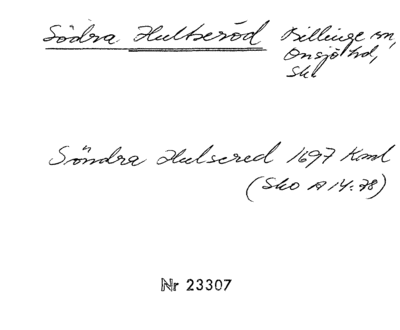 Södra Hultseröd Billinge sn,
Onsjö hd,
Sk
Söndra Hulsered 1697 Kaml
(Sko A 14:78)
Nr 23307